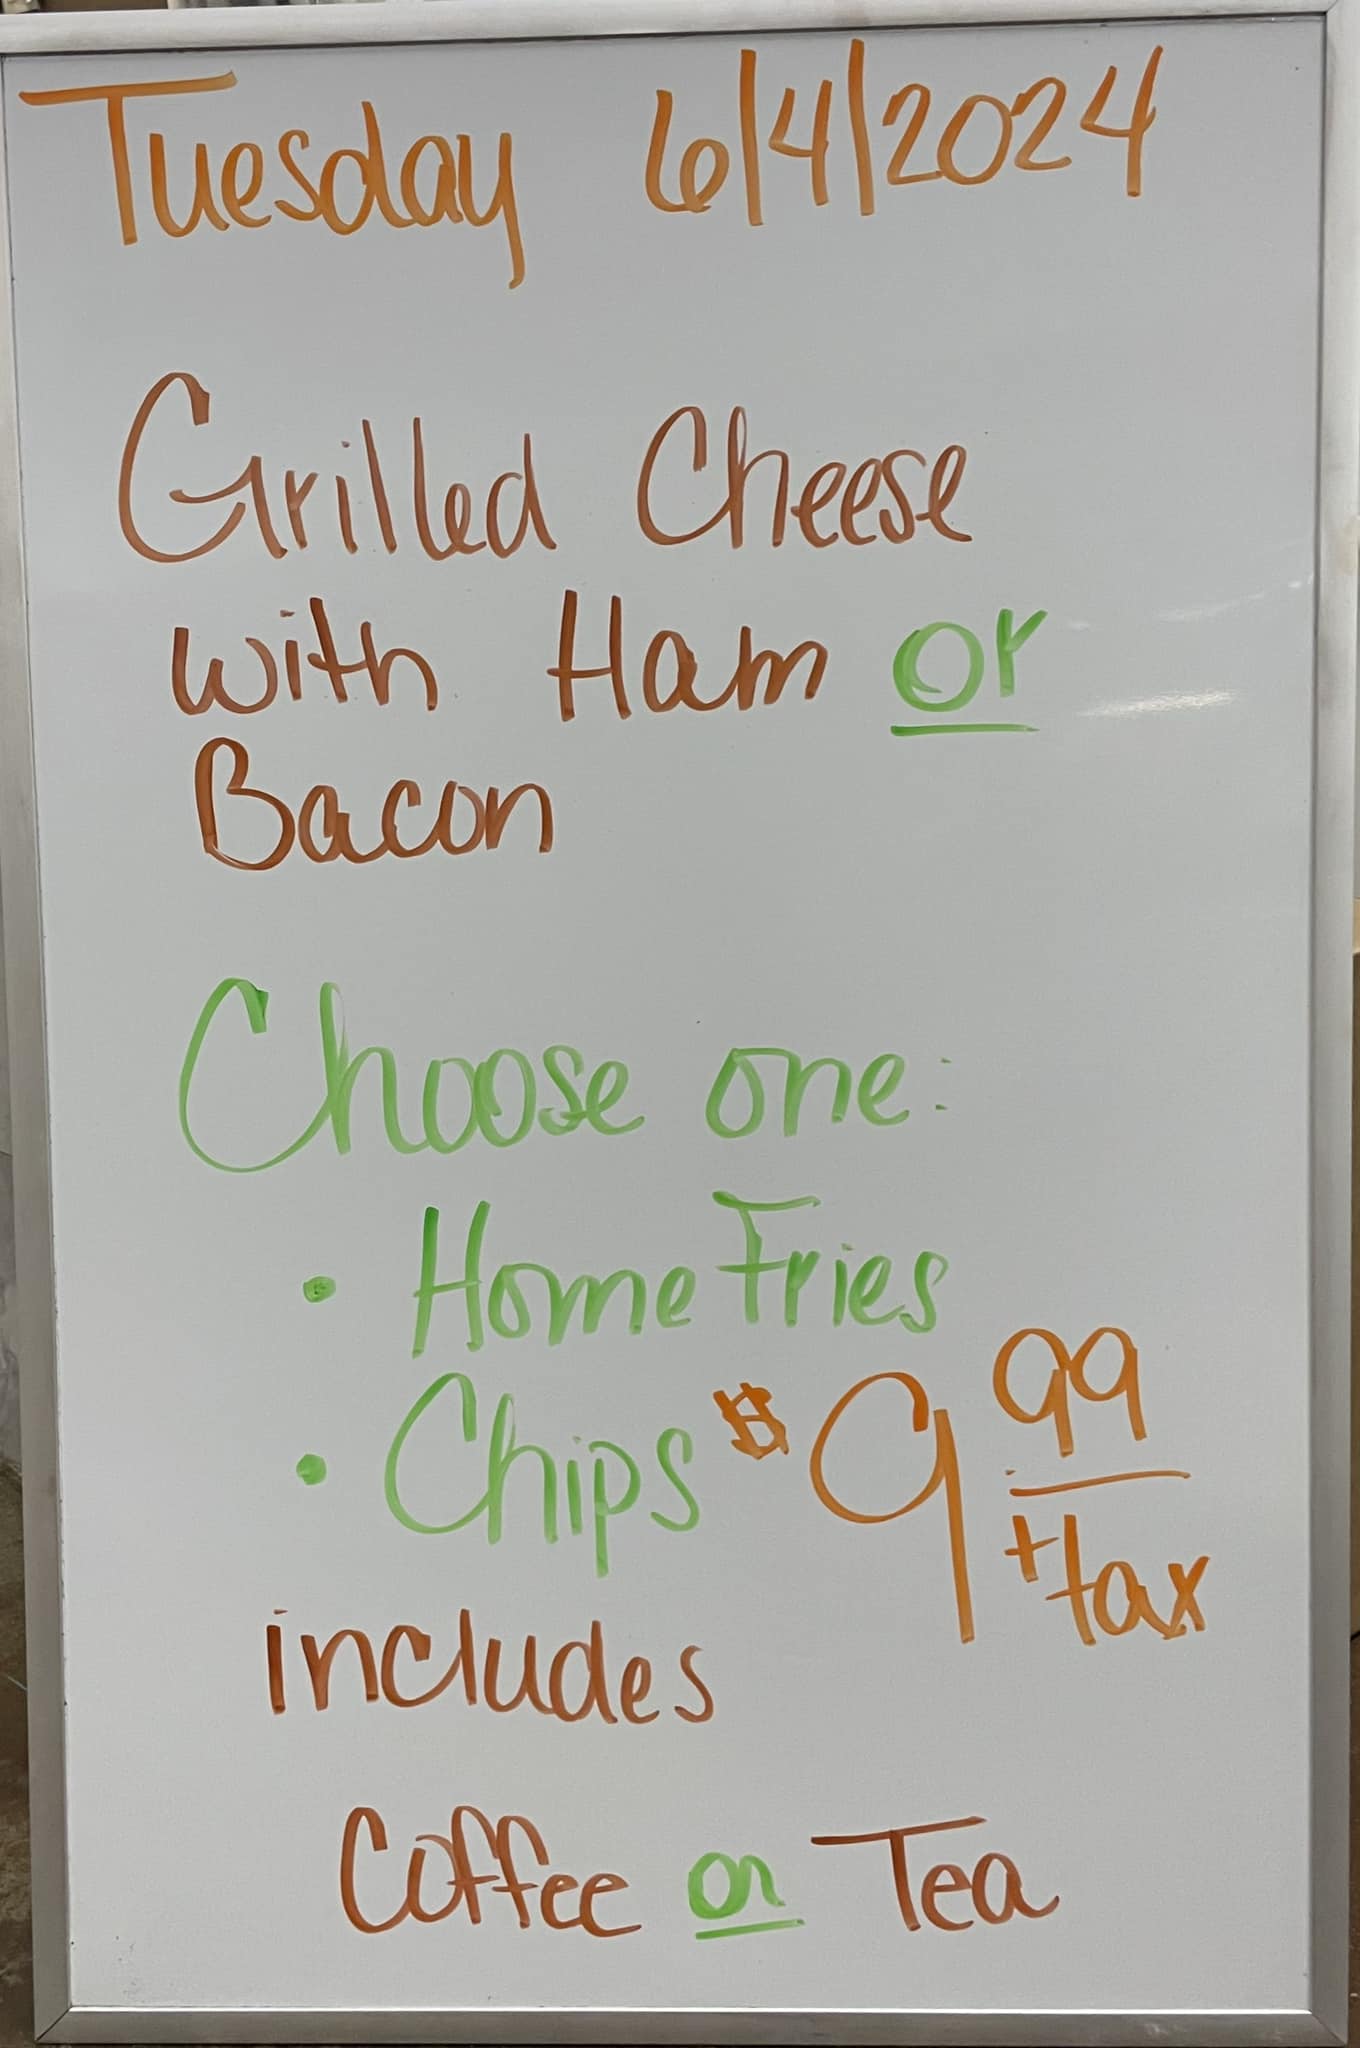 Tuesday 6/4/2024
Grilled Cheese
with Ham or
Bacon
Choose one:
• Home Fries
• Chips $9 99
+tax
includes
Coffee or Tea